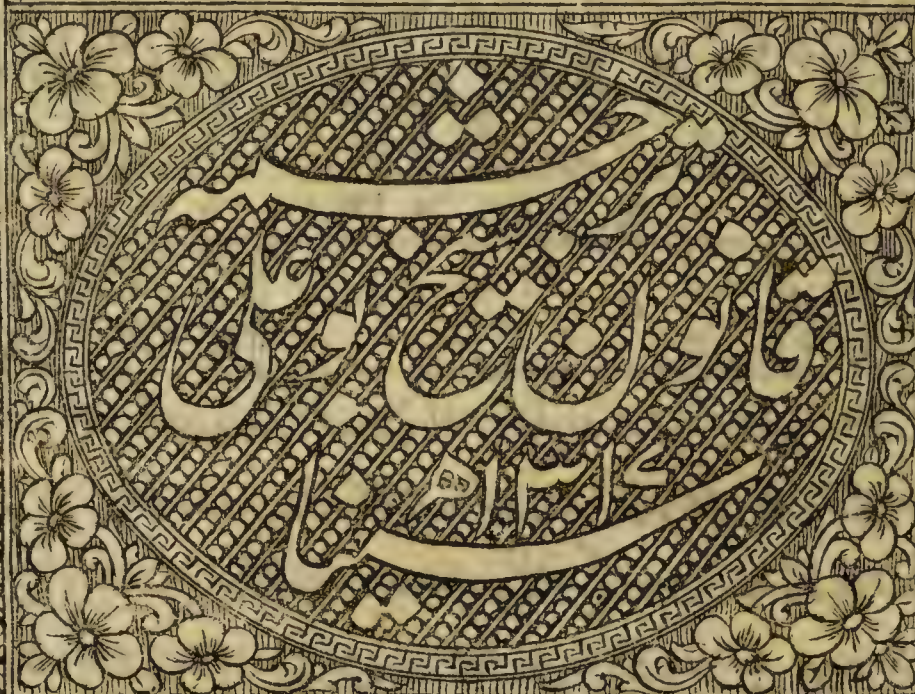 ترجمه
قانون شیخ بوعلی
سینا ۱۳۱۴ھ